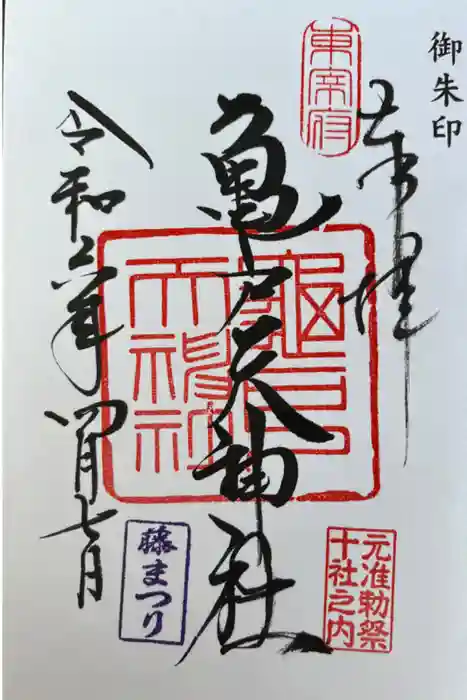 御朱印
奉拝
東宰府
元准勅祭
十社之内
亀戸天神社
龜戸
天神社
藤まつり
令和六年四月七日